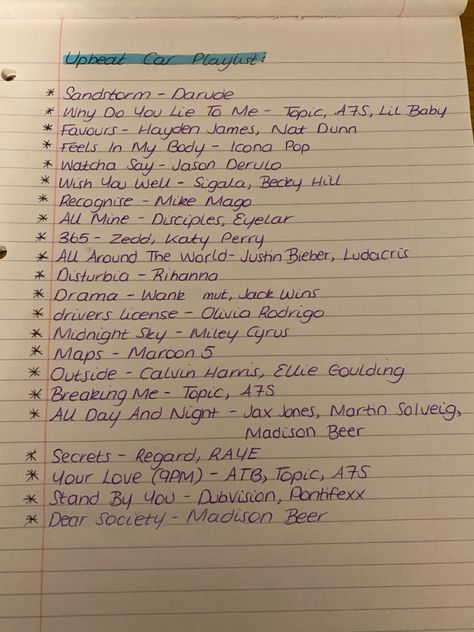 Upbeat Car Playlist:
* Sandstorm - Darude
* Why Do You Lie To Me - Topic, A7S, Lil Baby
* Favours - Hayden James, Nat Dunn
* Feels In My Body - Icona Pop
* Watcha Say - Jason Derulo
* Wish You Well - Sigala, Becky Hill
* Recognise - Mike Mago
* All Mine - Disciples, Eyelar
* 365 - Zedd, Katy Perry
* All Around The World - Justin Bieber, Ludacris
* Disturbia - Rihanna
* Drama - Wank mut, Jack Wins
* drivers license - Olivia Rodrigo
* Midnight Sky - Miley Cyrus
* Maps - Maroon 5
* Outside - Calvin Harris, Ellie Goulding
* Breaking Me - Topic, A7S
* All Day And Night - Jax Jones, Martin Solveig,
Madison Beer
* Secrets - Regard, RAYE
* Your Love (9PM) - ATB, Topic, A7S
* Stand By You - DubVision, Pontifexx
* Dear Society - Madison Beer